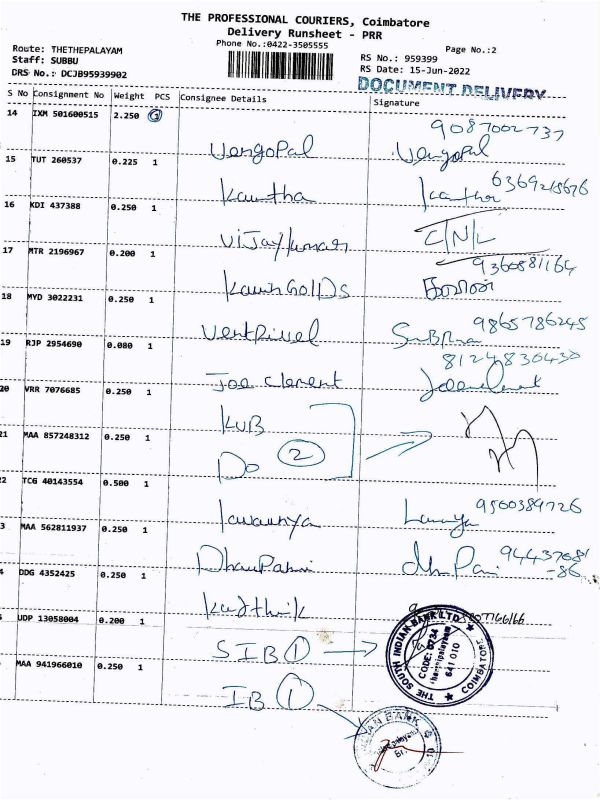 THE PROFESSIONAL COURIERS, Coimbatore
Delivery Runsheet - PRR
Phone No.:0422-3505555
Page No.:2
Route: THETHEPALAYAM
Staff: SUBBU
DRS No.: DCJB95939902
RS No.: 959399
RS Date: 15-Jun-2022
DOCUMENT DELIVERY
S No Consignment No Weight PCS Consignee Details Signature
14 IXM 501600515 2.250
9087002737
Venugopal Venugopal
15 TUT 260537 0.225 1
Kavitha 6369218676
16 KDI 437388 0.250 1
Vijaykumar C/N/L
17 MTR 2196967 0.200 1
9360881164
18 MYD 3022231 0.250 1
9865786245
19 RJP 2954690 0.080 1
8124836430
Joe Clement
20 VRR 7076685 0.250 1
KVB
21 MAA 857248312 0.250 1
Do 2
22 TCG 40143554 0.500 1
9500389726
Lavanya
23 MAA 562811937 0.250 1
94437081
-86
24 DDG 4352425 0.250 1
Karthik
UDP 13058004 0.200 1
SIB 1
THE SOUTH INDIAN BANK LTD
CODE: 0734
641 010
COIMBATORE
MAA 941966010 0.250 1
IB 1
BANK
Br.